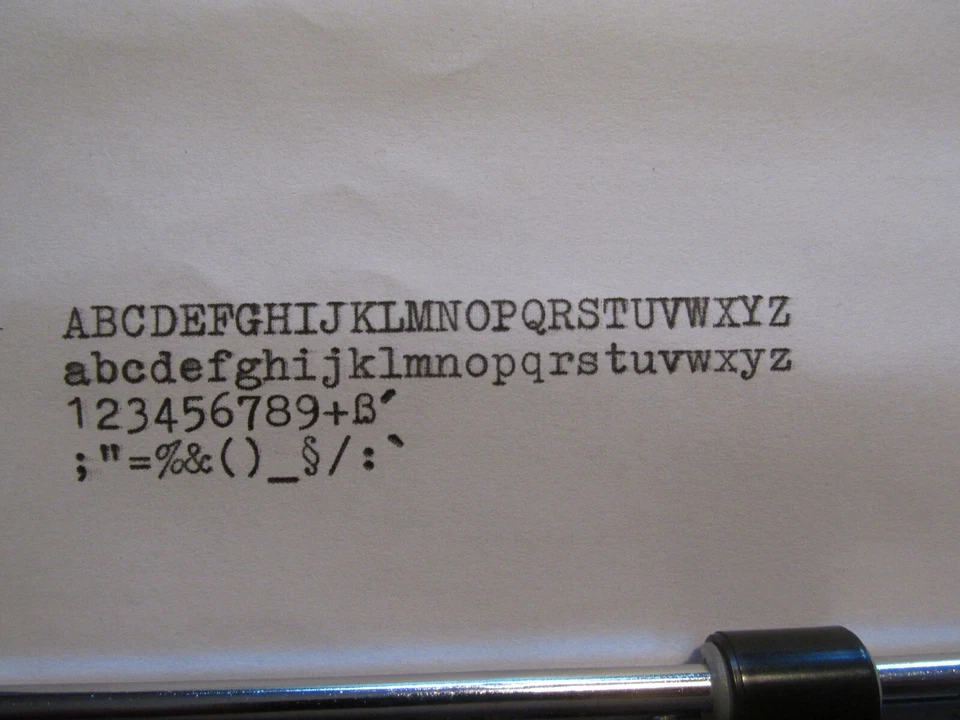 ABCDEFGHIJKLMNOPQRSTUVWXYZ
abcdefghijklmnopqrstuvwxyz
123456789+ß´
;"=%&()_§/:`